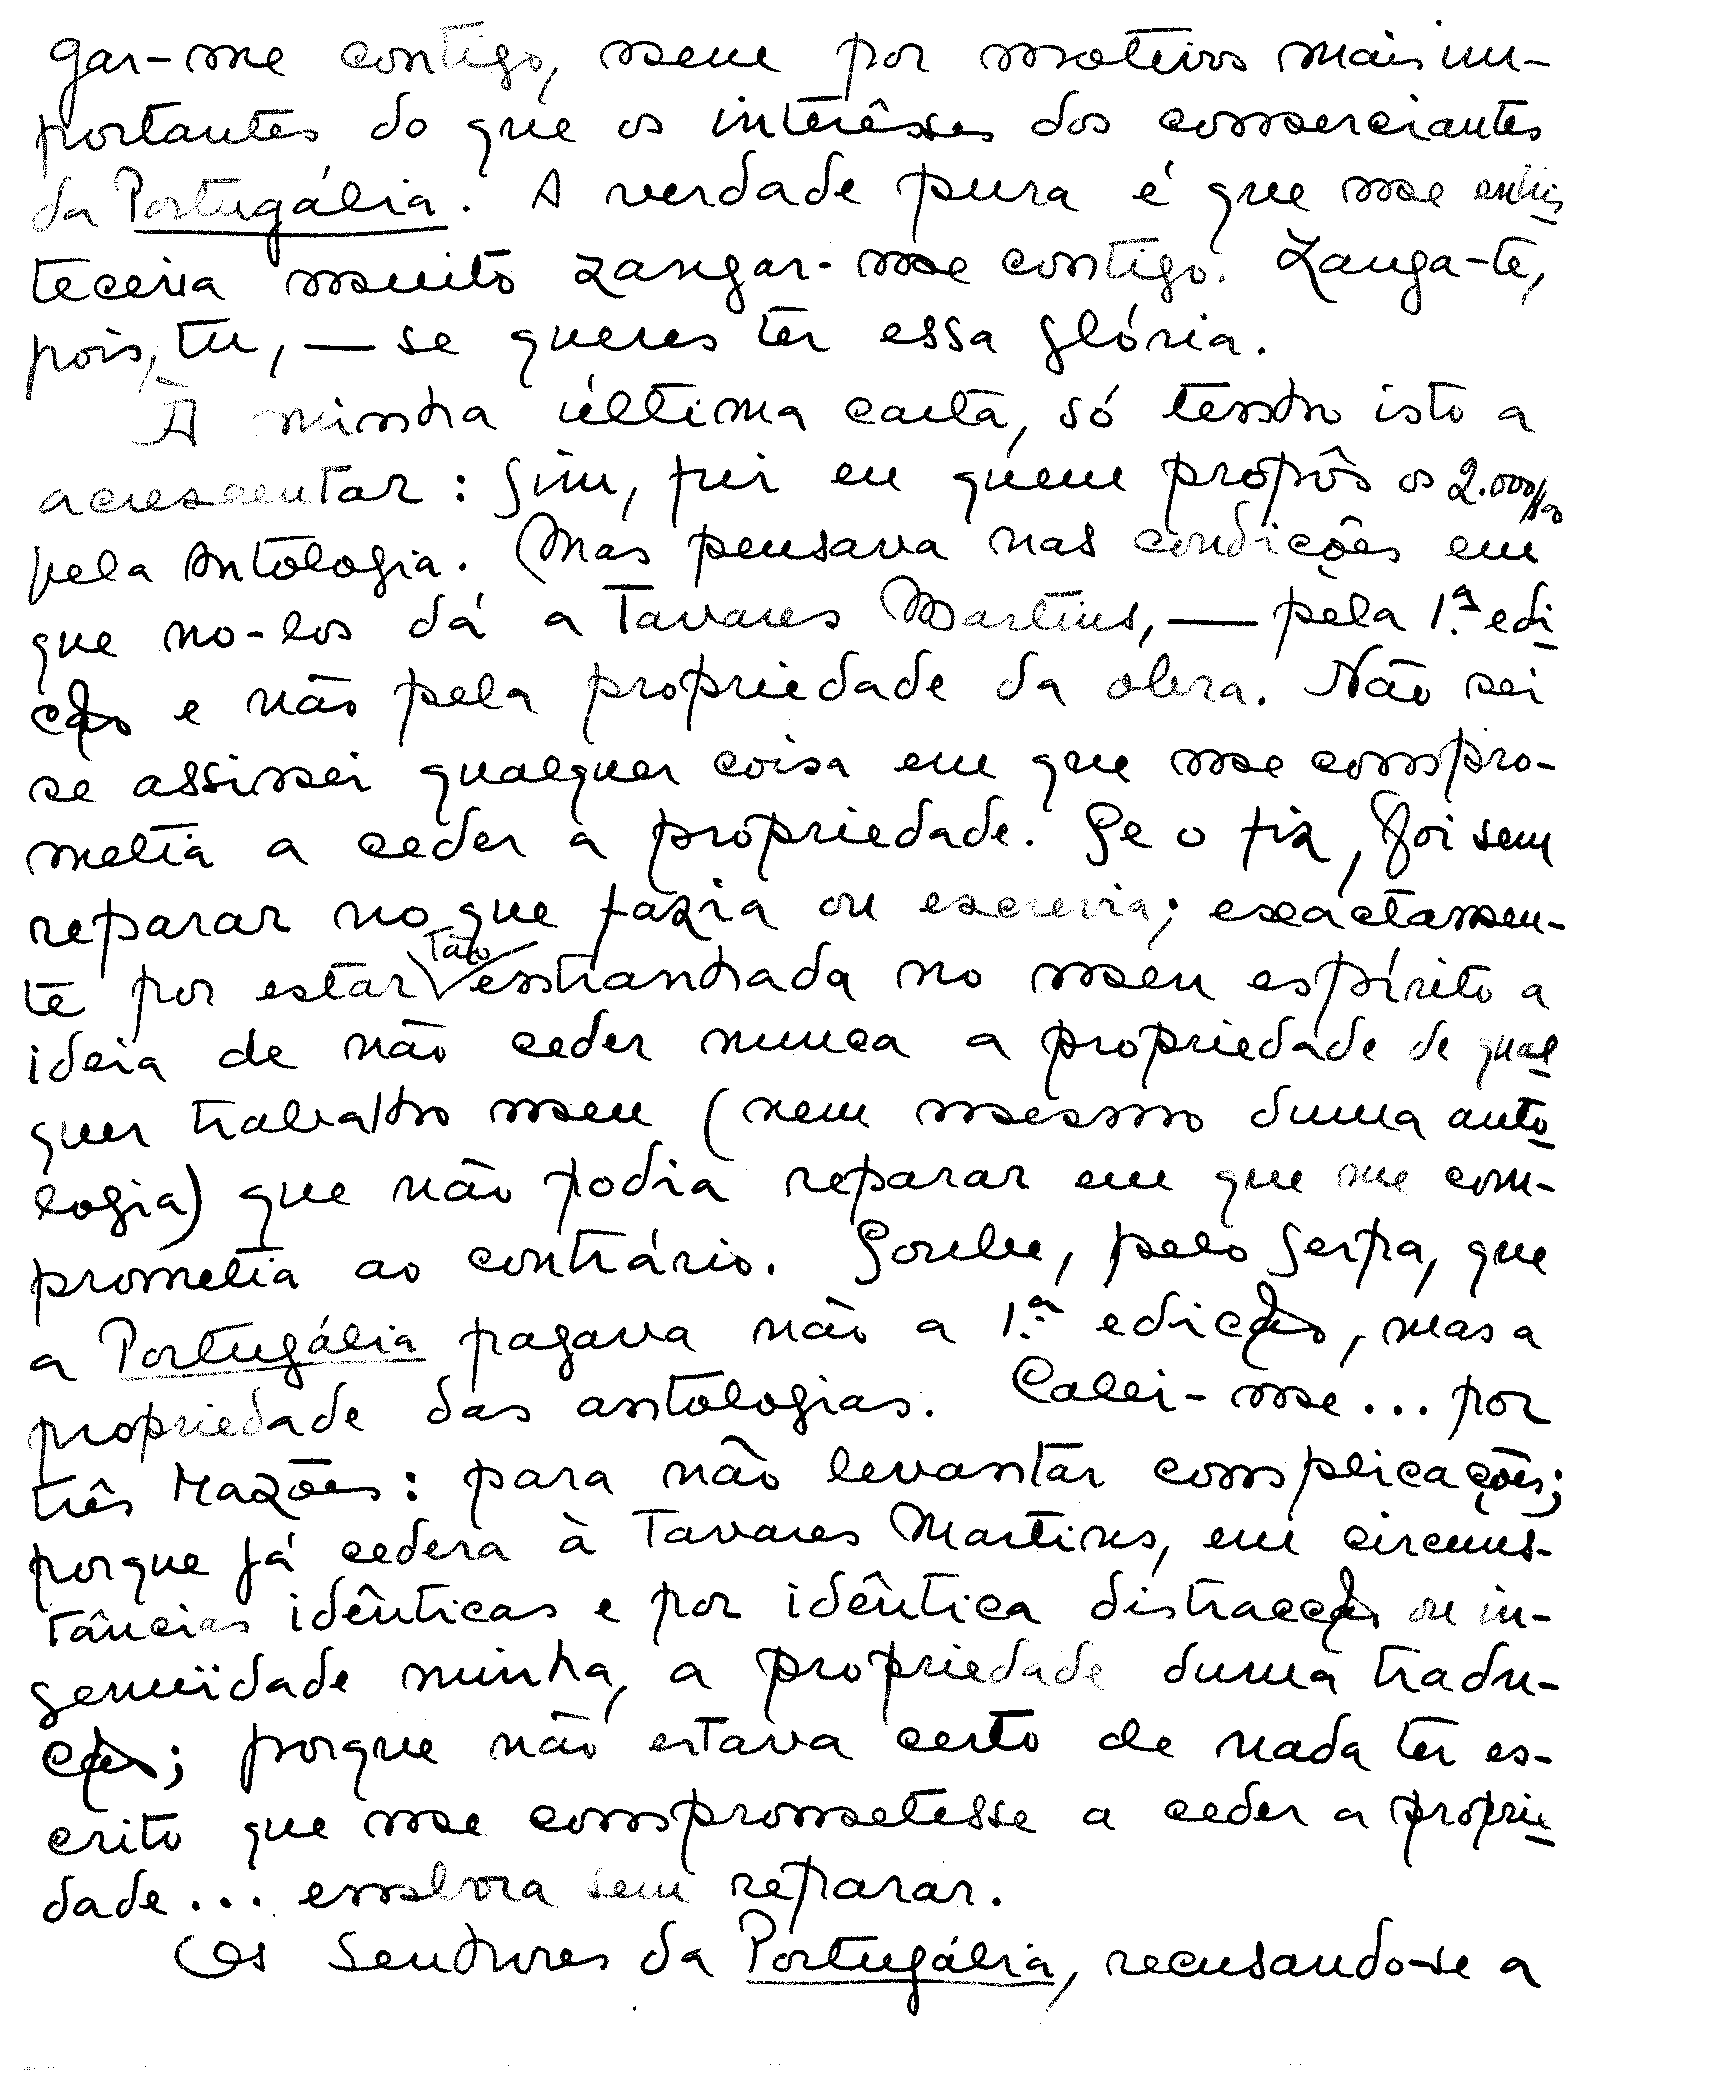 gar-me contigo, nem por motivos mais im-
portantes do que os interêsses dos comerciantes
da Portugália. A verdade pura é que me entris
teceria muito zangar-me contigo. Zanga-te,
pois, tu, — se queres ter essa glória.
À minha última carta, só tenho isto a
acrescentar: Sim, fui eu quem propôs os 2.000$00
pela Antologia. Mas pensava nas condições em
que no-los dá a Tavares Martins, — pela 1.ª edi
ção e não pela propriedade da obra. Não sei
se assinei qualquer coisa em que me compro-
metia a ceder a propriedade. Se o fiz, foi sem
reparar no que fazia ou escrevia; exactamen-
te por estar tão entranhada no meu espírito a
ideia de não ceder nunca a propriedade de qual
quer trabalho meu (nem mesmo duma anto
logia) que não podia reparar em que me com-
prometia ao contrário. Soube, pelo Serpa, que
a Portugália pagava não a 1.ª edição, mas a
propriedade das antologias. Calei-me... por
três razões: para não levantar complicações;
porque já cedera à Tavares Martins, em circuns-
tâncias idênticas e por idêntica distracção ou in-
genuïdade minha, a propriedade duma tradu-
ção; porque não estava certo de nada ter es-
crito que me comprometesse a ceder a proprie
dade... embora sem reparar.
Os Senhores da Portugália, recusando-se a